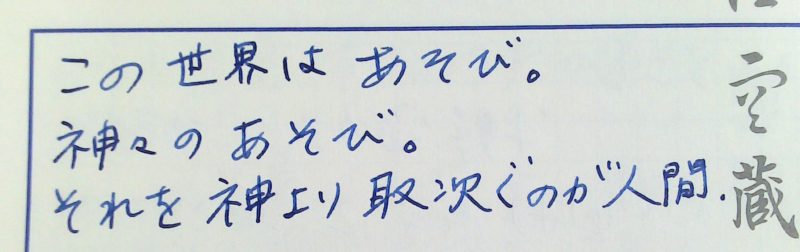 この世界はあそび。
神々のあそび。
それを神より取次ぐのが人間.
空蔵